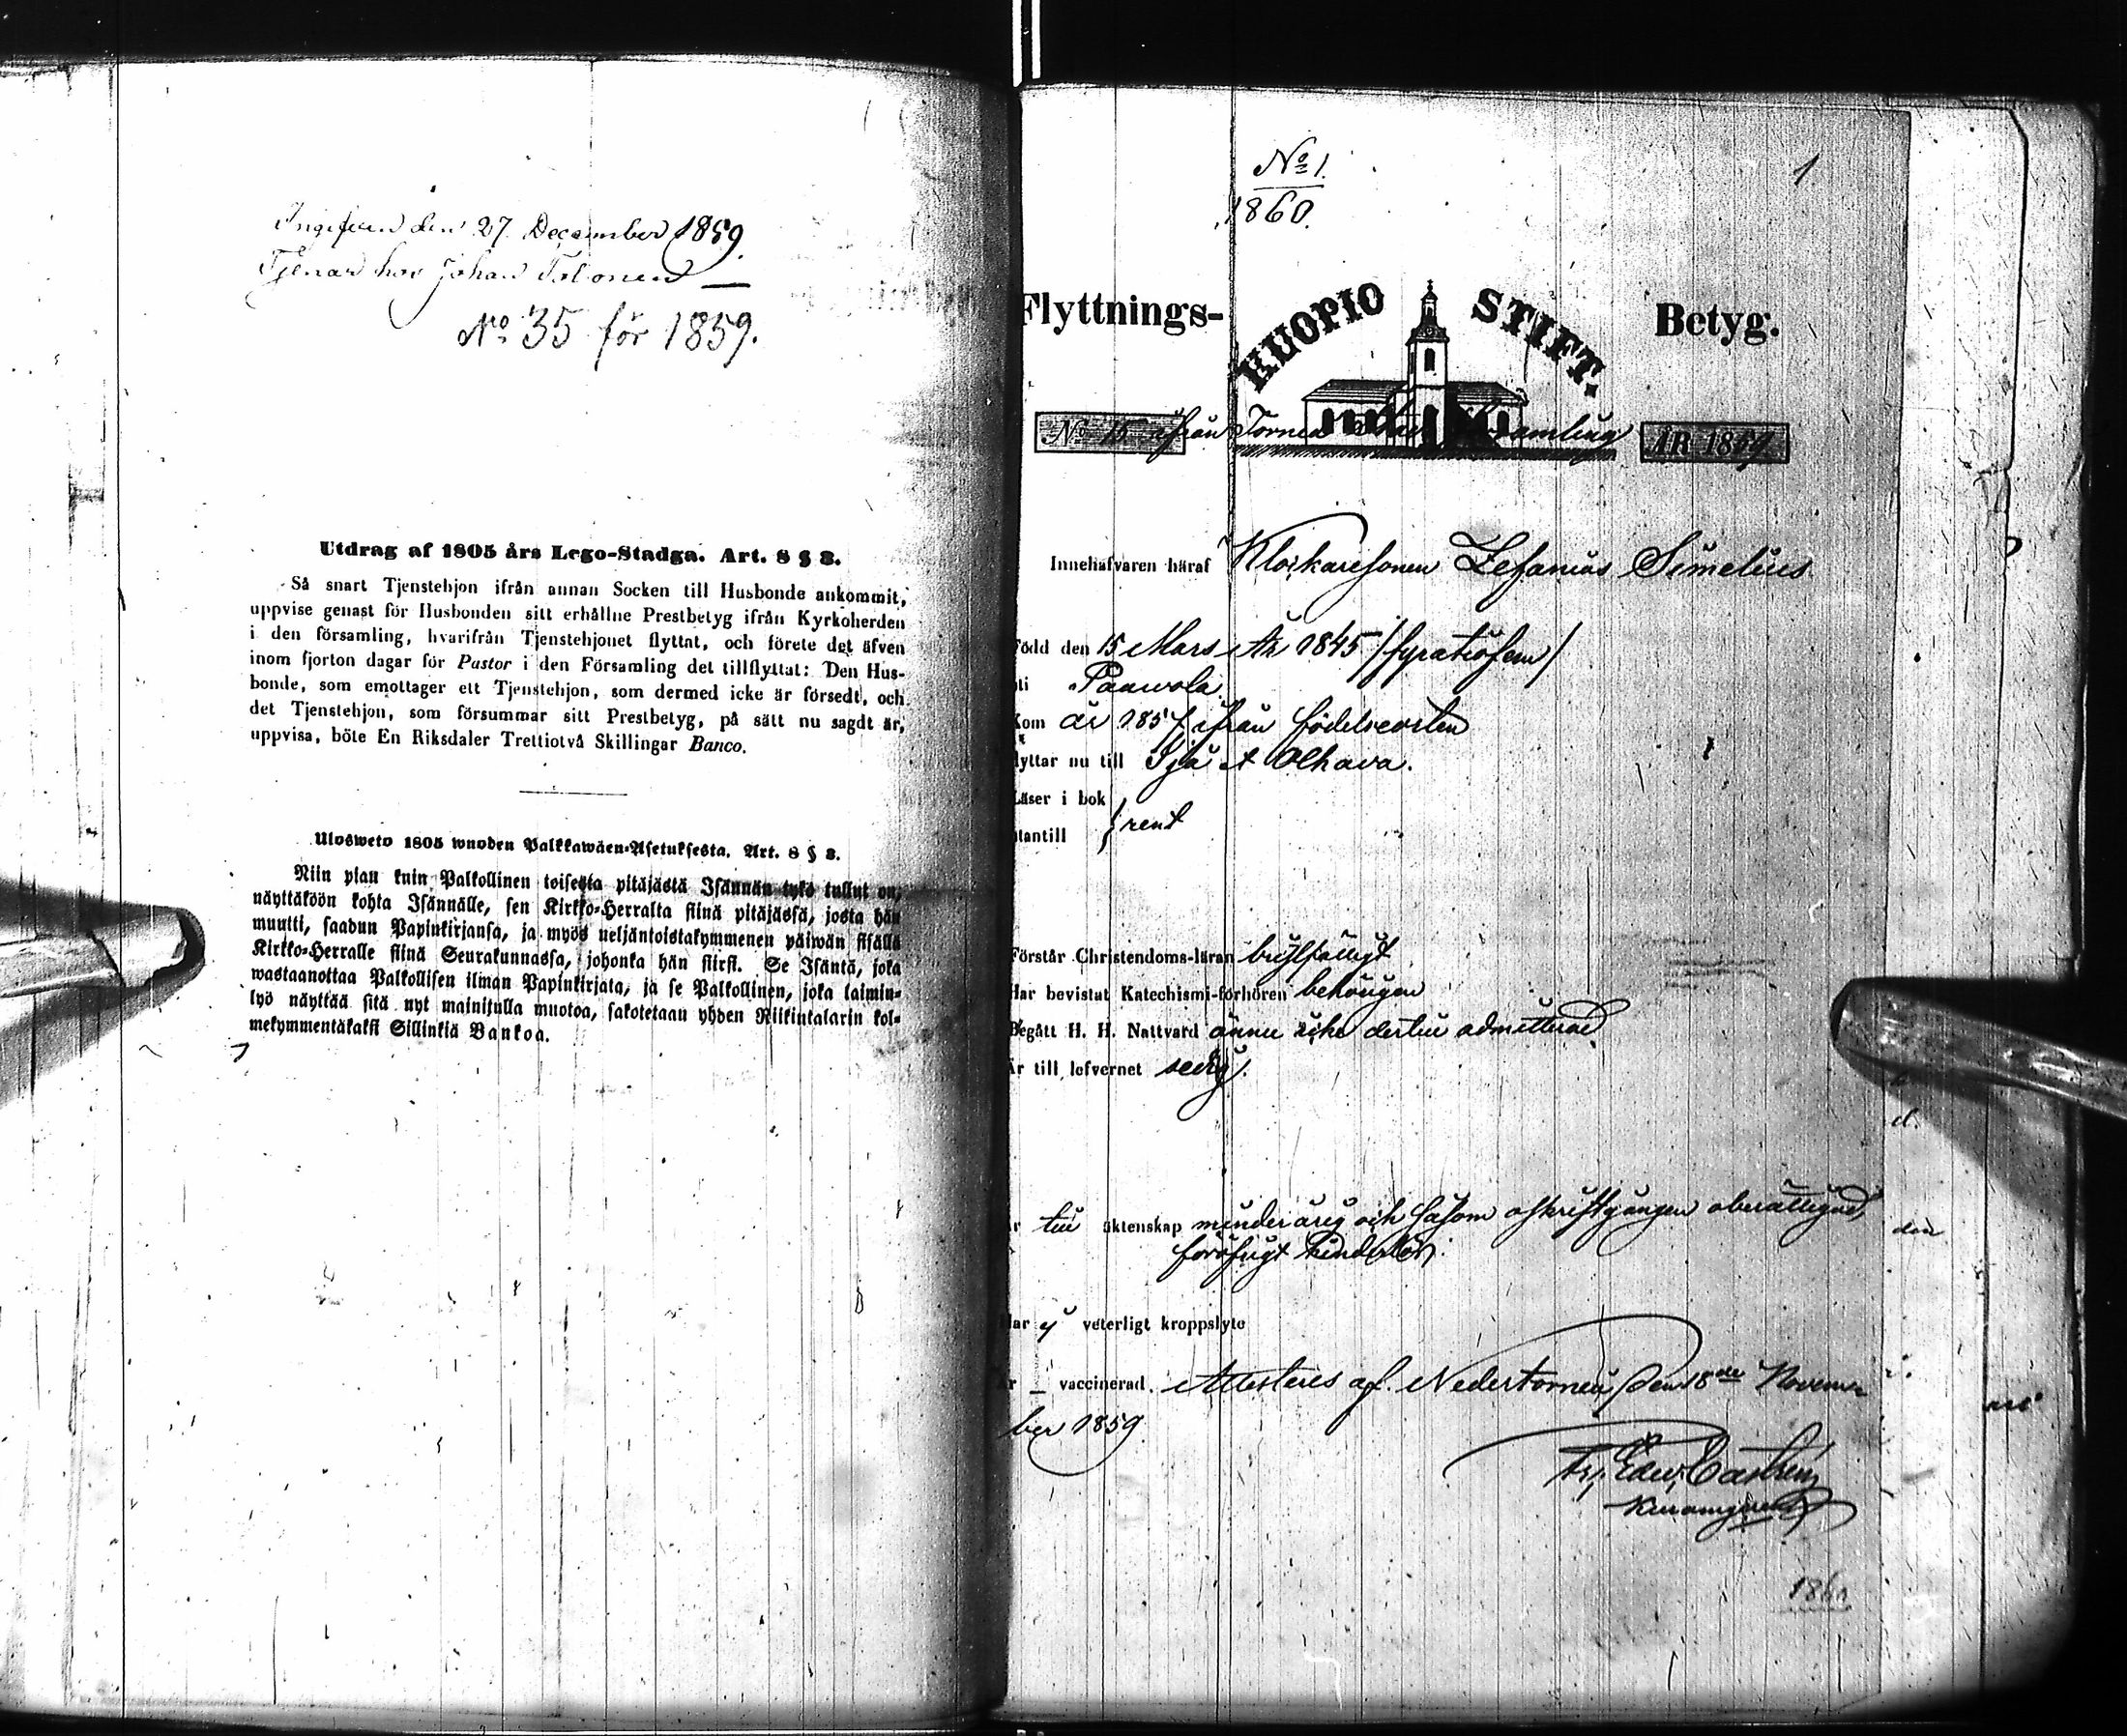 Ingifven den 27 December 1859.
Tjenar hos Johan Tolonen
No 35 för 1859.
Utdrag af 1805 års Lego-Stadga. Art. 8 § 3.
Så snart Tjenstehjon ifrån annan Socken till Husbonde ankommit,
uppvise genast för Husbonden sitt erhållne Prestbetyg ifrån Kyrkoherden
i den församling, hvarifrån Tjenstehjonet flyttat, och förete det äfven
inom fjorton dagar för Pastor i den Församling det tillflyttat: Den Hus-
bonde, som emottager ett Tjenstehjon, som dermed icke är försedt, och
det Tjenstehjon, som försummar sitt Prestbetyg, på sätt nu sagdt är,
uppvisa, böte En Riksdaler Trettiotvå Skillingar Banco.
Ulosweto 1805 wuoden Palkkawäen-Asetuksesta. Art. 8 § 3.
Niin pian kuin Palkollinen toisesta pitäjästä Isännän tykö tullut on,
näyttäköön kohta Isännälle, sen Kirkko-Herralta siinä pitäjässä, josta hän
muutti, saadun Papinkirjansa, ja myös neljäntoistakymmenen päiwän sisällä
Kirkko-Herralle siinä Seurakunnassa, johonka hän siirsi. Se Isäntä, joka
wastaanottaa Palkollisen ilman Papinkirjata, ja se Palkollinen, joka laimin-
lyö näyttää sitä nyt mainitulla muotoa, sakotetaan yhden Riikintalarin kol-
mekymmentäkaksi Sillinkiä Bankoa.
No 1.
1860.
1
Flyttnings- KUOPIO STIFT. Betyg.
No 15 ifrån Torneå församling ÅR 1859.
Innehafvaren häraf Klockaresonen Zefanias Simelius
Född den 15 Mars År 1845 /fyratiofem/
uti Paavola.
Kom år 1857 ifrån födelseorten
flyttar nu till Ijo & Olhava.
Läser i bok
utantill } rent
Förstår Christendoms-läran
Har bevistat Katechismi-förhören behörigen
Begått H. H. Nattvard ännu icke dertill admitterad.
Är till lefvernet sedig.
Är till äktenskap minderårig och såsom oskriftgången oberättigad,
föröfrigt hinderlös.
Har ej veterligt kroppslyte
Är — vaccinerad. Attesteres af. Nedertorneå, den 18de Novem-
ber 1859.
Castrén
1860